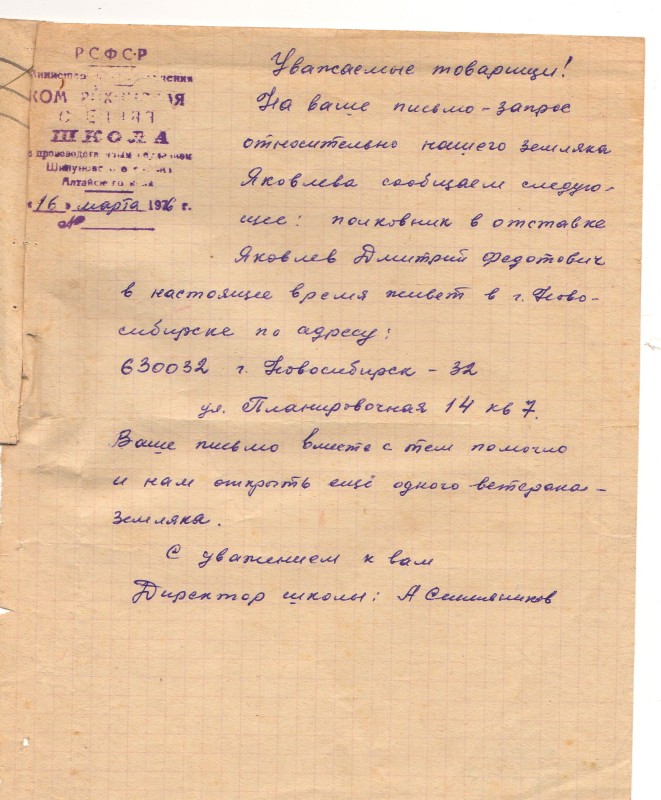 РСФСР
ШКОЛА
Алтайского края
«16» марта 1976 г.
№
Уважаемые товарищи!
На ваше письмо-запрос
относительно нашего земляка
Яковлева сообщаем следую-
щее: полковник в отставке
Яковлев Дмитрий Федотович
в настоящее время живет в г. Ново-
сибирске по адресу:
630032 г. Новосибирск - 32
ул. Планировочная 14 кв 7.
Ваше письмо вместе с тем помогло
и нам открыть ещё одного ветерана-
земляка.
С уважением к вам
Директор школы: А